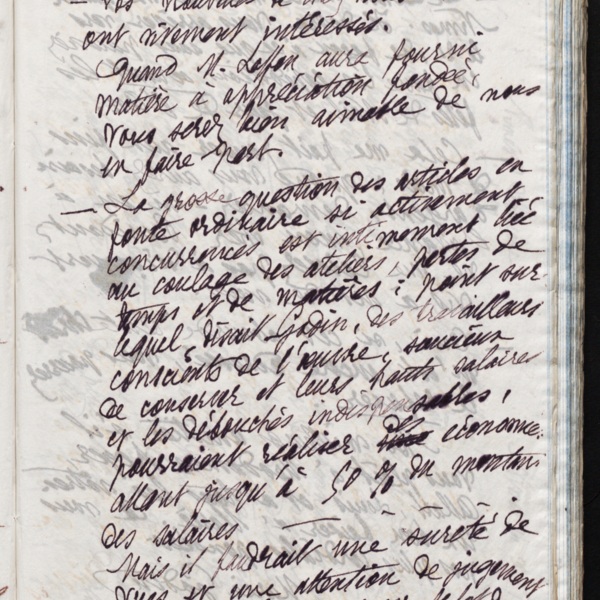 — Vos nouvelles de
ont vivement intéressés.
Quand M. Leffon aura fourni
matière à appréciation fondée,
vous serez bien aimable de nous
en faire part.
— La grosse question des articles en
fonte ordinaire si activement
concurrencés est intimement liée
au coulage des ateliers, pertes de
temps et de matières ; point sur
lequel, disait Godin, des travailleurs
conscients de l'œuvre, soucieux
de conserver et leurs hauts salaires
et les débouchés indispensables,
pourraient réaliser économies
allant jusqu'à 50 % du montant
des salaires
Mais il faudrait une sûreté de
vues et une attention de jugement